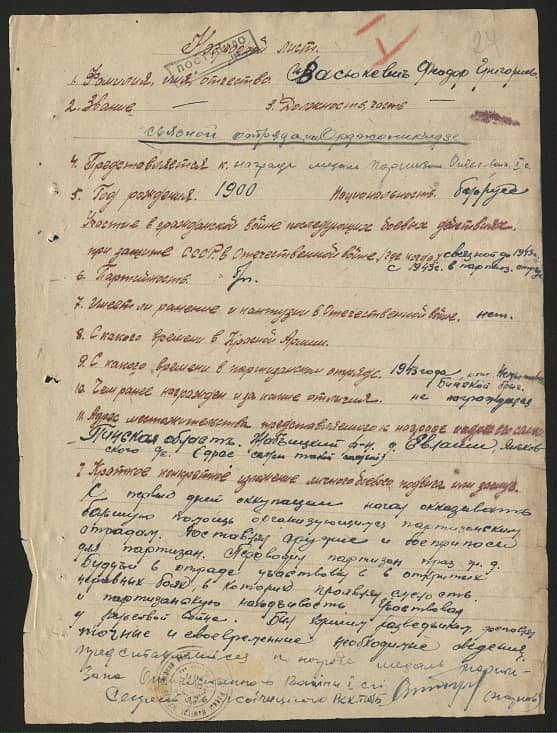 Наградной лист.
ПОСТУПИЛО
24
1. Фамилия, имя, отчество Васюкевич Феодор Григорьев.
2. Звание — 3. Должность, часть —
связной отряда им Орджоникидзе
4. Представляется к награде медали Партизан Отечествен. I с.
5. Год рождения. 1900 Национальность. беларус
Участие в гражданской войне последующих боевых действиях
при защите СССР в Отечественной войне, где когда, связной до 1943г.
с 1943г. в партиз. отряде
6. Партийность. б/п.
7. Имеет ли ранение и контузии в Отечественной войне. нет.
8. С какого времени в Красной Армии.
9. С какого времени в партизанском отряде. 1943 года
Пинской бриг.
10. Чем ранее награжден и за какие отличия. не награждался
11. Адрес местожительства представляемого к награде
Пинская область. Жабчицкий р-н. д.
7 Краткое конкретное изложение личного боевого подвига или заслуг.
С первых дней оккупации начал оказывать
большую помощь организующимся партизанским
отрядам. Доставлял оружие и боеприпасы
для партизан. Переводил партизан через ж.д.
Будучи в отряде участвовал в открытых
неравных боях, в которых проявлял смелость
и партизанскую находчивость. Участвовал
в рельсовой войне. Был хорошим разведчиком, доставлял
точные и своевременные необходимые сведения.
представляется к награде медаль Парти-
зана Отечественной войны I ст.
Секретарь Жабчицкого РК КП(б)Б